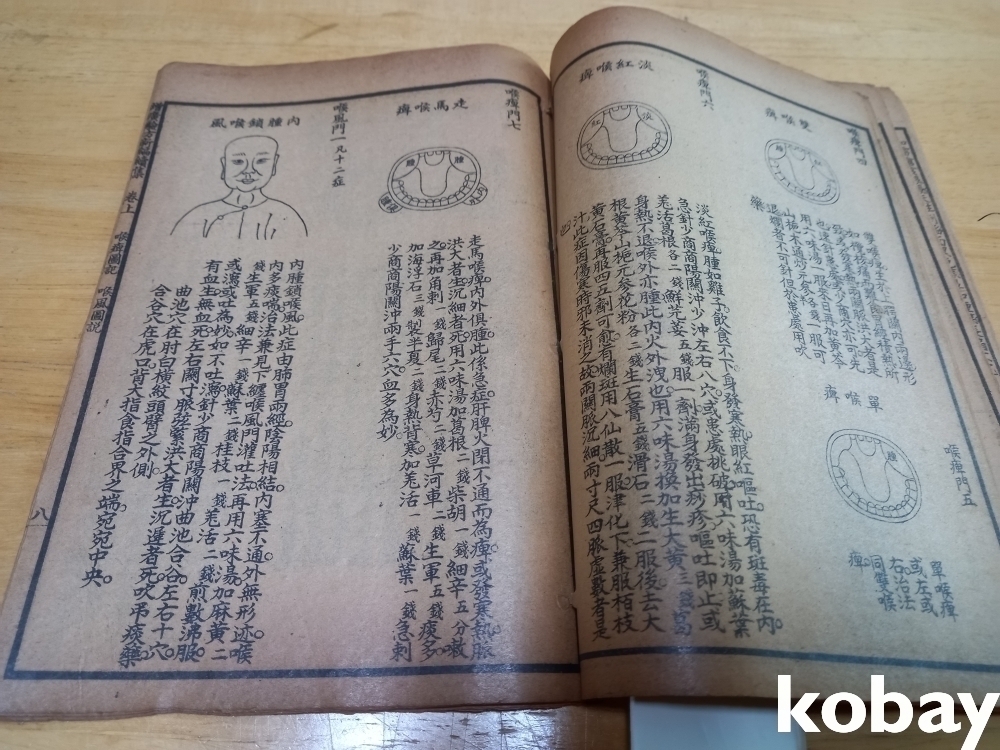 喉痺門四
雙喉痺
腫
腫
喉痺門五
單喉痺
腫
單喉痺
或左或
右治法
同雙喉
痺
喉痺門六
淡紅喉痺
淡
紅
淡紅喉痺腫如雞子飲食不下身發寒熱眼紅嘔吐恐有斑毒在內
急針少商商陽關沖少沖左右八穴或患處挑破用六味湯加蘇葉
羌活葛根各二錢鮮芫荽五錢服一劑滿身發出痧疹嘔吐即止或
身熱不退喉外亦腫此內火外洩也用六味湯換加生大黃三錢葛
根黃芩山梔元參花粉各二錢生石膏五錢滑石二錢二服後去大
黃石膏再服四五劑可愈有爛斑用八仙散一服津化下兼服柏枝
汁此症因傷寒時邪未消之故兩關脈沉細兩寸尺四脈虛數者是
也
喉痺門七
走馬喉痺
腫
腫
走馬喉痺內外俱腫此係急症肝脾火閉不通而為痺或發寒熱脈
洪大者生沉細者死用六味湯加葛根二錢柴胡一錢細辛五分漱
之再加角刺一錢歸尾二錢赤芍二錢草河車二錢生軍五錢痰多
加海浮石三錢製半夏二錢身熱背寒加羌活一錢蘇葉一錢急刺
少商商陽關沖兩手六穴血多為妙
喉風門一凡十二症
內腫鎖喉風
內腫鎖喉風此症由肺胃兩經陰陽相結內塞不通外無形迹喉
內多痰喘治法兼見下纏喉風門灌吐法再用六味湯加麻黃二
錢生軍五錢細辛一錢蘇葉二錢桂枝一錢羌活二錢煎數沸服
或瀉或吐為妙如不吐瀉針少商商陽關沖曲池合谷左右十穴
有血生無血死左右關寸脈弦緊洪大者生沉遲者死吹吊痰藥
曲池穴在肘臼橫紋頭臂之外側
合谷穴在虎口背大指食指合界之端宛宛中央
卷上
喉痺圖說
喉風圖說
八
kobay